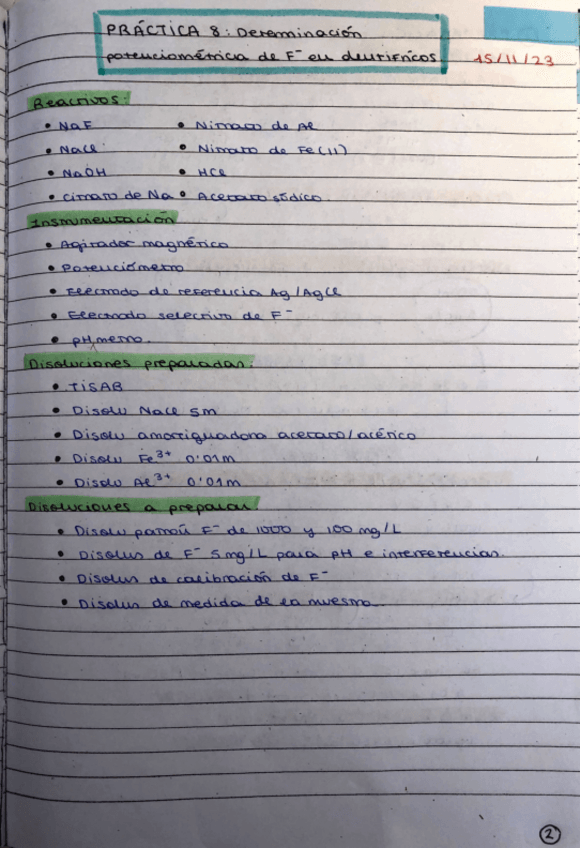 PRÁCTICA 8: Determinación
potenciométrica de F⁻ en dentífricos
15/11/23
Reactivos:
• NaF • Nitrato de Al
• NaCl • Nitrato de Fe(II)
• NaOH • HCl
• Citrato de Na • Acetato sódico
Instrumentación
• Agitador magnético
• Potenciómetro
• Electrodo de referencia Ag/AgCl
• Electrodo selectivo de F⁻
• pHmetro.
Disoluciones preparadas:
• TISAB
• Disolu NaCl 5m
• Disolu amortiguadora acetato/acético
• Disolu Fe³⁺ 0'01m
• Disolu Al³⁺ 0'01m
Disoluciones a preparar:
• Disolu patrón F⁻ de 1000 y 100 mg/L
• Disolus de F⁻ 5mg/L para pH e interferencias.
• Disolus de calibración de F⁻
• Disolus de medida de la muestra.
2